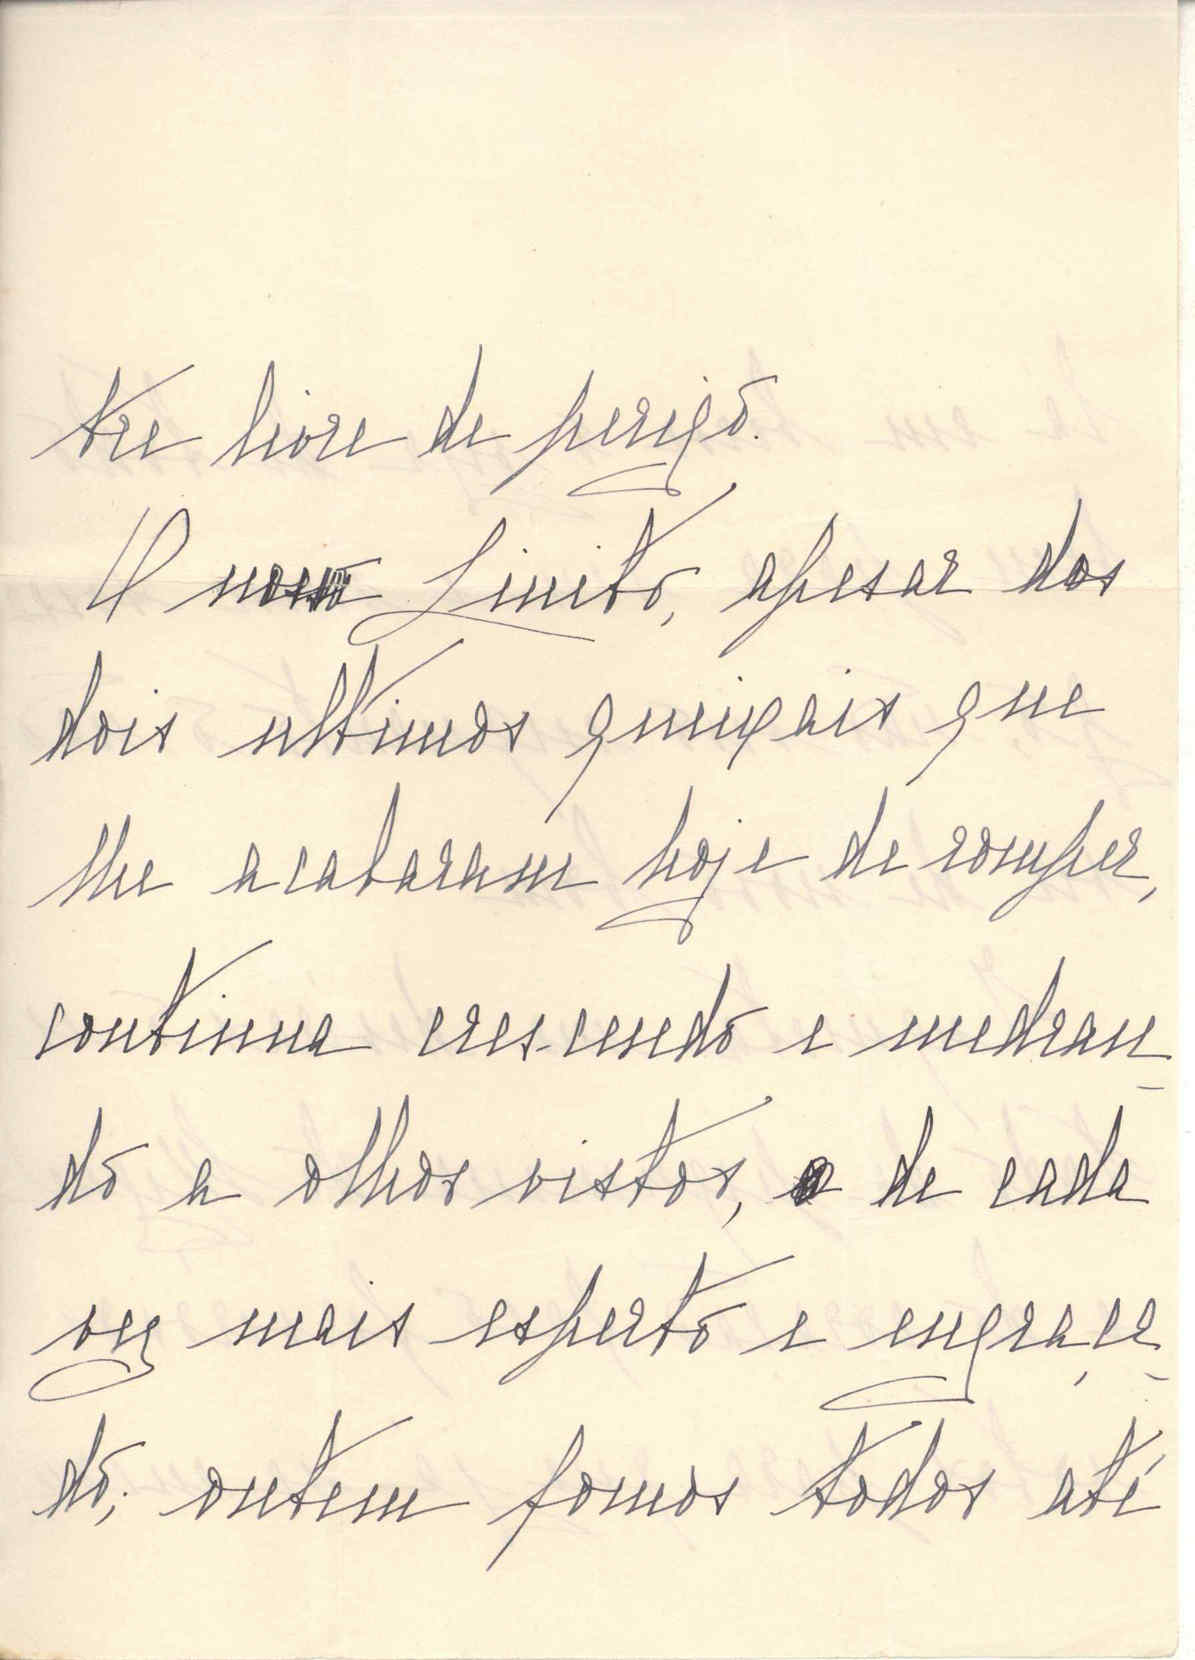 tre livre de perigo.
O nosso Linito, apesar dos
dois ultimos queixais que
lhe acabaram hoje de romper,
continua crescendo e medran-
do a olhos vistos, e de cada
vez mais esperto e engraça-
do; ontem fomos todos até